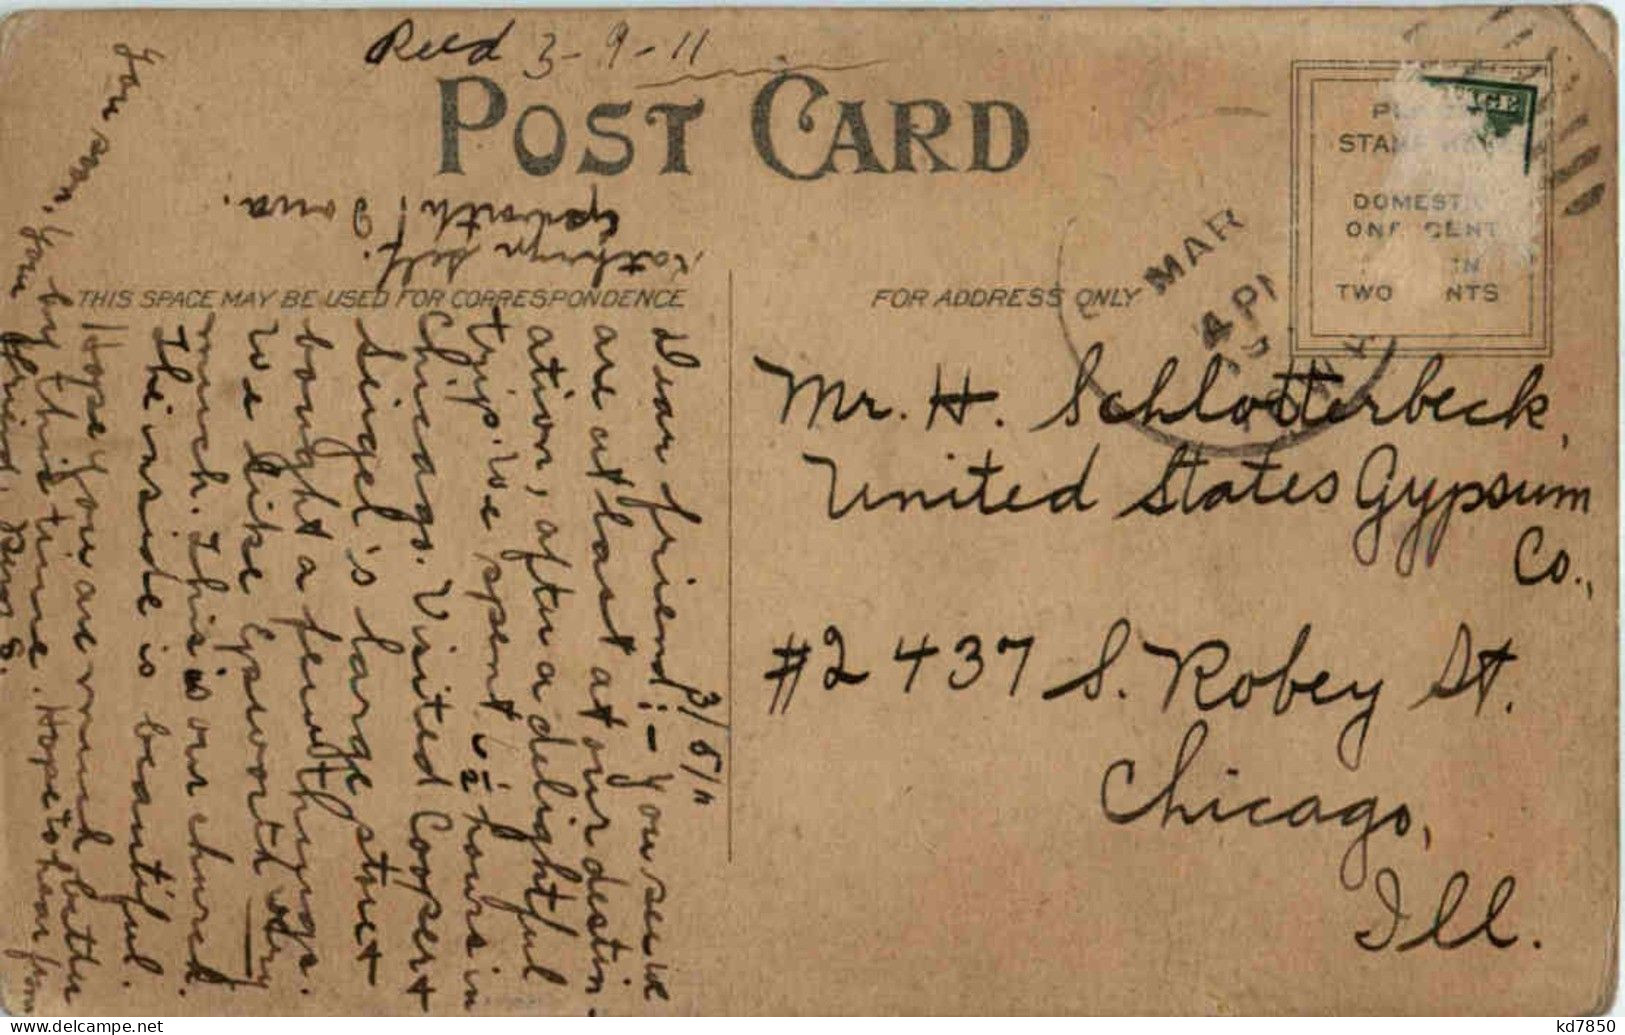 Recd 3-9-11
POST CARD
THIS SPACE MAY BE USED FOR CORRESPONDENCE
FOR ADDRESS ONLY
DOMESTIC
ONE CENT
TWO
MAR
4 PM
3/5/11
Dear friend:- You see we
are at last at our destin-
ation, after a delightful
trip. We spent 1/2 hours in
Chicago. Visited Cooper +
Seigel's large store +
bought a few things.
We like Epworth very
much. This is our church.
The inside is beautiful.
Hope you are much better
by this time. Hope to hear from
you soon. Your
friend,
Kathryn Self.
Epworth, Iowa.
Mr. H. Schlotterbeck,
United States Gypsum
Co.,
#2437 S. Robey St.
Chicago,
Ill.
kd7850